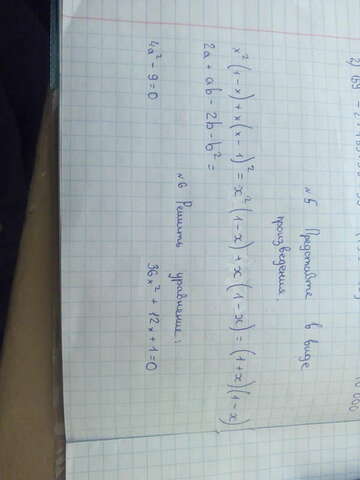 №5 Представьте в виде
произведения.
x² (1-x) + x(x-1)² = x² (1-x) + x (1-x) = (1+x)(1-x)
2a + ab - 2b - b² =
№6 Решить уравнение:
4a² - 9 = 0 36x² + 12x + 1 = 0